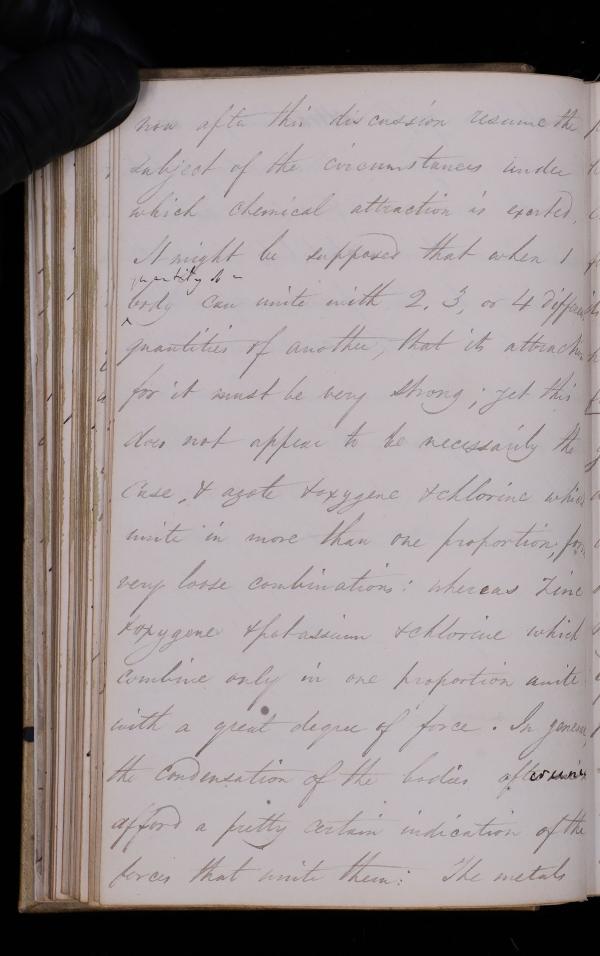 now after this discussion resume the
subject of the circumstances under
which chemical attraction is exerted.
It might be supposed that when 1
quantity of a
body can unite with 2, 3, or 4 different
quantities of another, that its attraction
for it must be very strong; yet this
does not appear to be necessarily the
case, & azote & oxygene & chlorine which
unite in more than one proportion, form
very loose combinations: whereas Zinc
& oxygene & potassium & chlorine which
combine only in one proportion unite
with a great degree of force. In general
the condensation of the bodies after
afford a pretty certain indication of the
forces that unite them: The metals